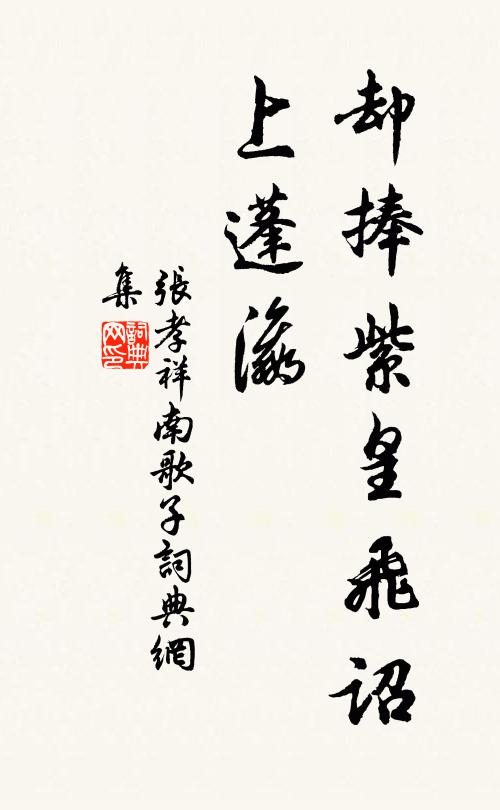 却捧紫皇飛詔
上蓬瀛
張孝祥南歌子詞典網
集
詞典
网印